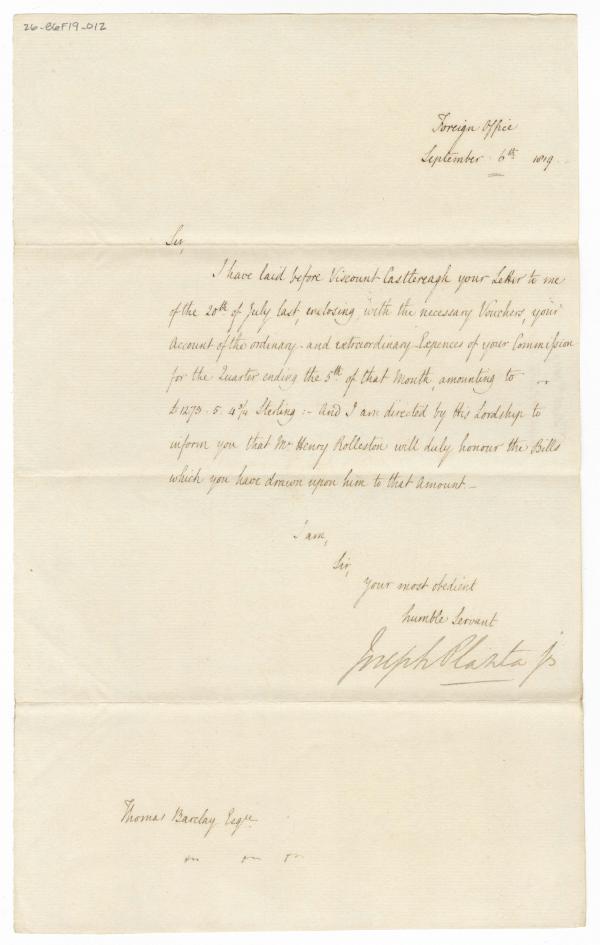 26-B6F19-012
Foreign Office
September 6th 1819
Sir,
I have laid before Viscount Castlereagh your Letter to me
of the 20th of July last, enclosing with the necessary Vouchers, your
Account of the ordinary and extraordinary Expences of your Commission
for the Quarter ending the 5th of that Month amounting to
£1273. 5. 4 3/4 Sterling:- And I am directed by His Lordship to
inform you that Mr Henry Rolleston will duly honour the Bills
which you have drawn upon him to that Amount.-
I am,
Sir,
Your most obedient
humble Servant
Joseph Planta Jr
Thomas Barclay Esqre